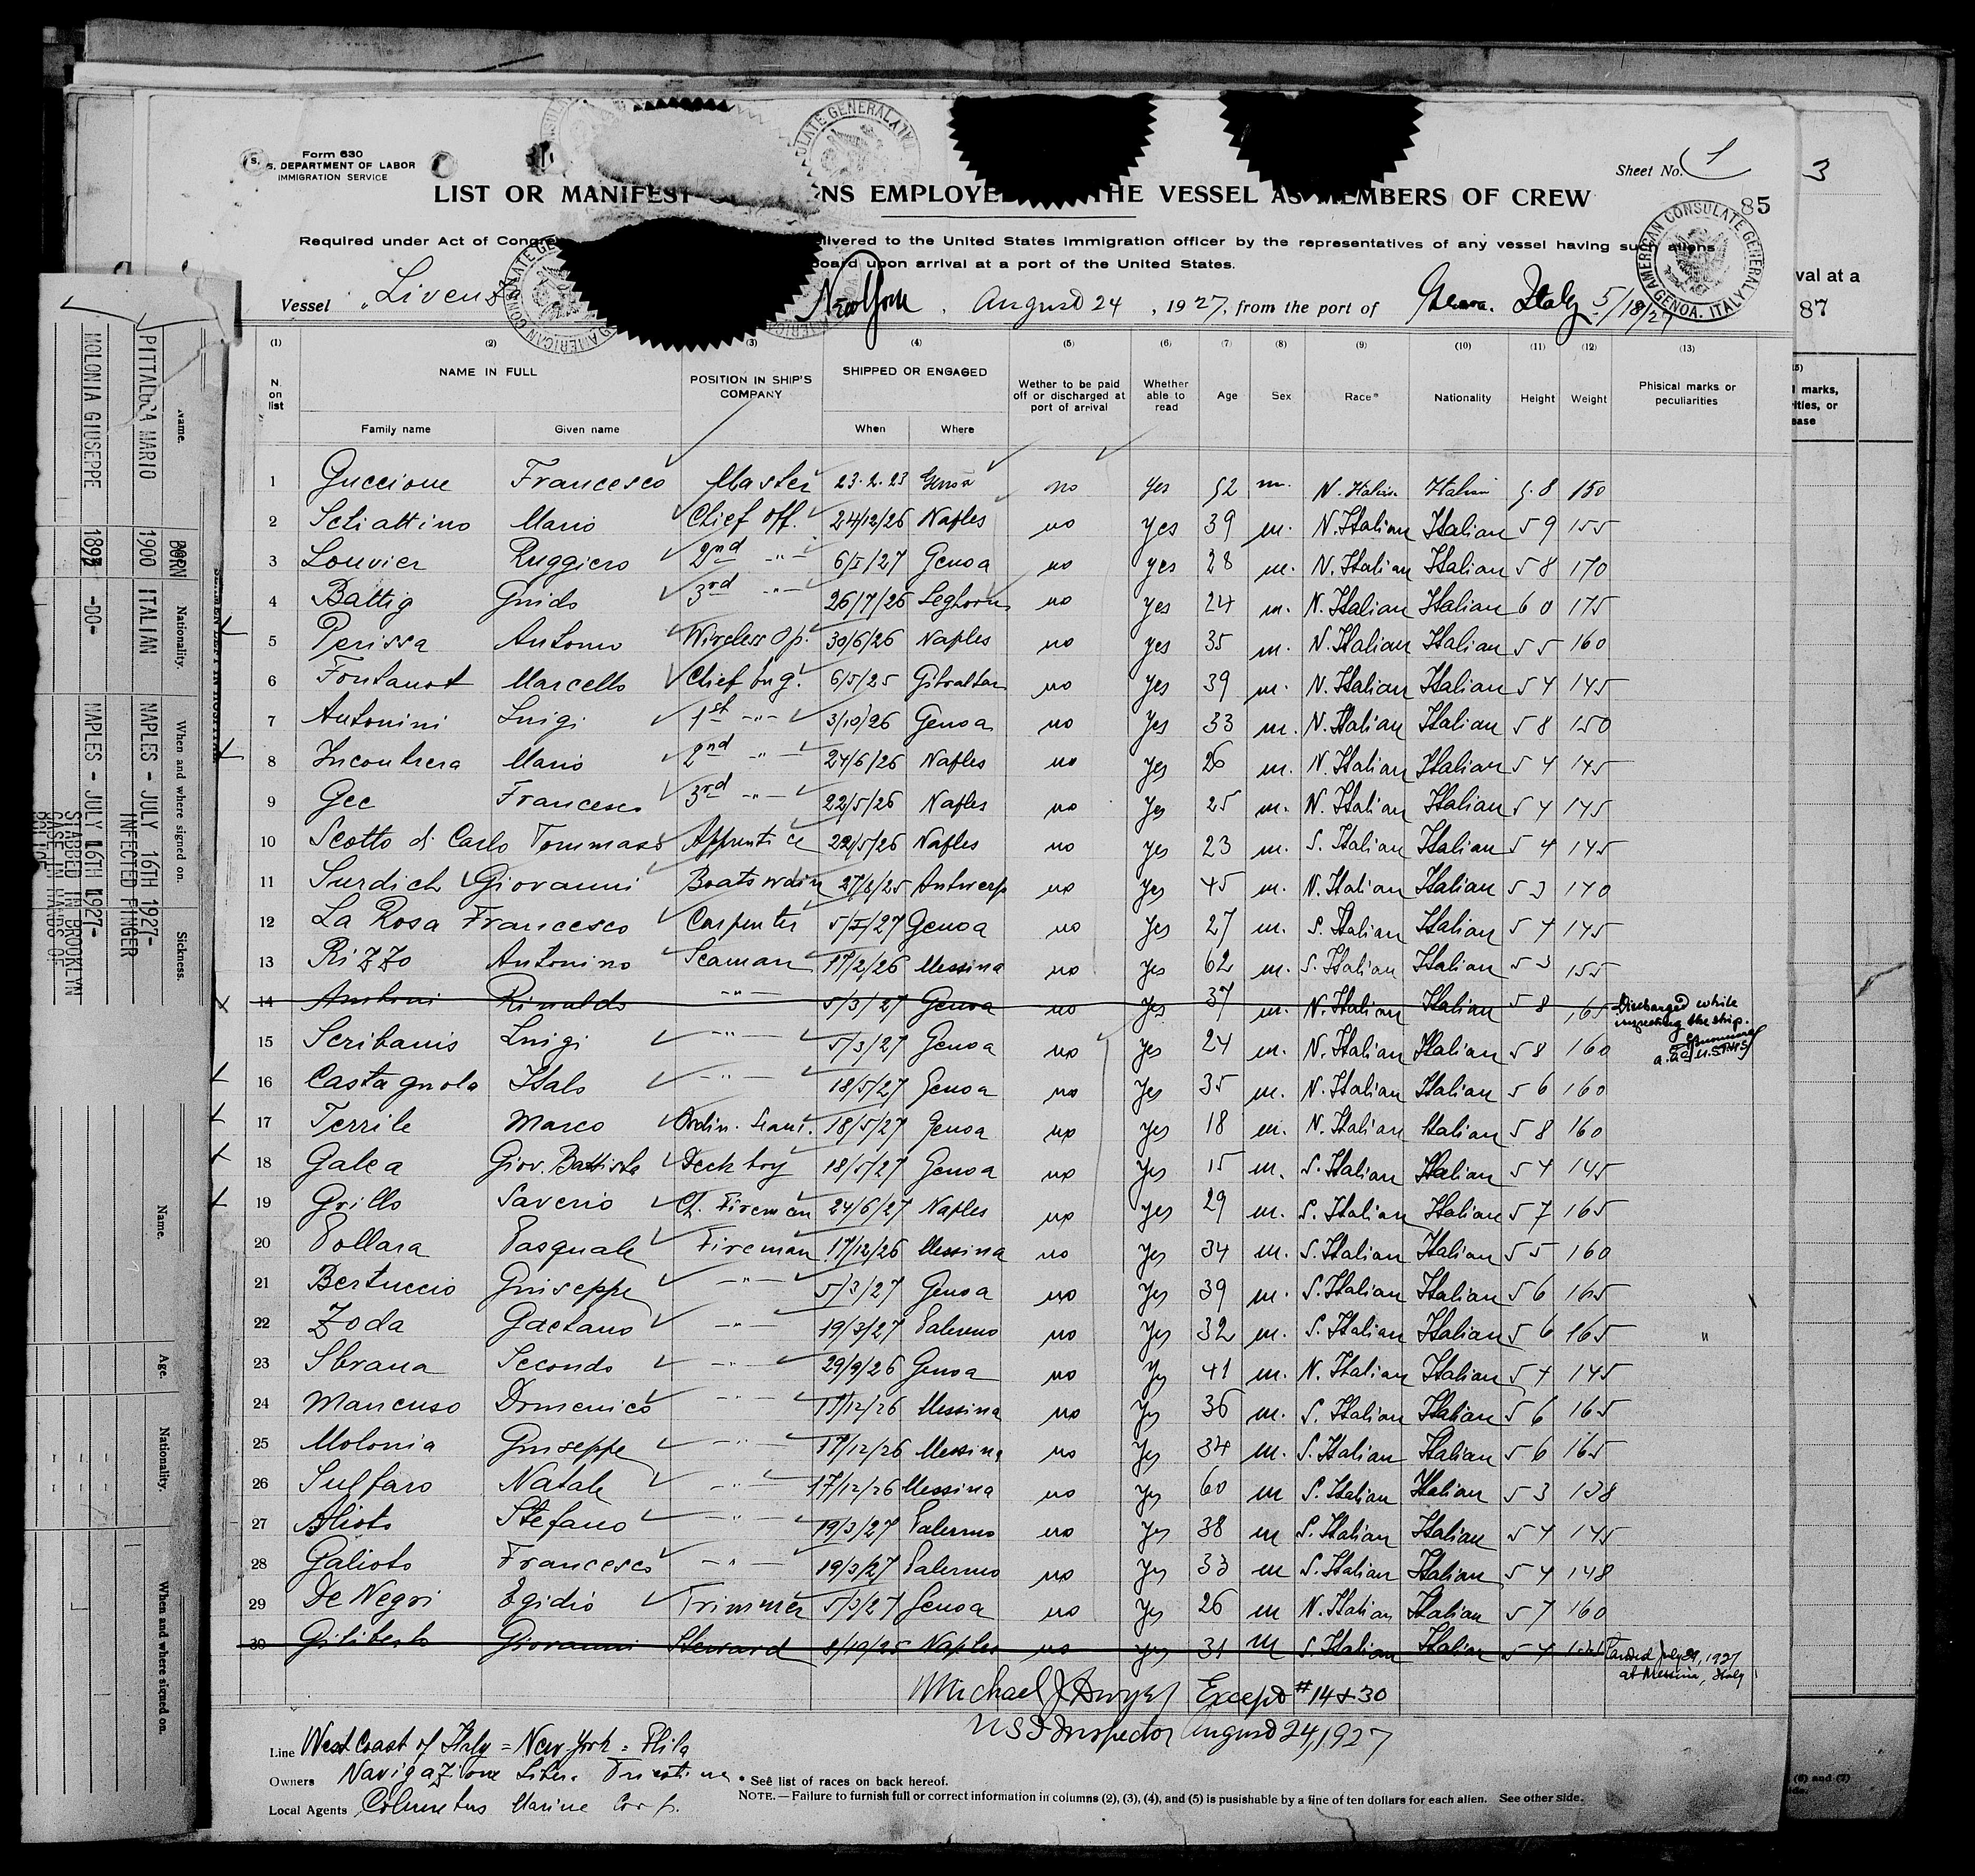 Form 630
S. DEPARTMENT OF LABOR
IMMIGRATION SERVICE
Sheet No. 1
3
LIST OR MANIFEST NS EMPLOYE THE VESSEL AS MEMBERS OF CREW
85
Required under Act of Congre livered to the United States Immigration officer by the representatives of any vessel having such aliens
board upon arrival at a port of the United States.
val at a
87
Vessel New York, August 24, 1927, from the port of Genoa. Italy 5/18/27
AMERICAN CONSULATE GENERAL GENOA, ITALY
(1) (2) (3) (4) (5) (6) (7) (8) (9) (10) (11) (12) (13)
N. on list NAME IN FULL POSITION IN SHIP'S COMPANY SHIPPED OR ENGAGED Wether to be paid off or discharged at port of arrival Whether able to read Age Sex Race* Nationality Height Weight Phisical marks or peculiarities
Family name Given name When Where
1 Guccione Francesco Master 23.2.23 Genoa no yes 52 m. N. Italian Italian 5.8 150
2 Schiattino Mario Chief off. 24/12/26 Naples no yes 39 m. N. Italian Italian 5 9 155
3 Louvier Ruggiero 2nd -"- 6/I/27 Genoa no yes 28 m. N. Italian Italian 5 8 170
4 Battig Guido 3rd -"- 26/7/26 Leghorn no yes 24 m. N. Italian Italian 6 0 175
5 Perissa Antonio Wireless Op. 30/6/26 Naples no yes 35 m. N. Italian Italian 5 5 160
6 Fontanot Marcello Chief Eng. 6/5/25 Gibraltar no yes 39 m. N. Italian Italian 5 4 145
7 Antonini Luigi 1st -"- 3/10/26 Genoa no yes 33 m. N. Italian Italian 5 8 150
8 Incontrera Mario 2nd -"- 24/6/26 Naples no yes 26 m. N. Italian Italian 5 4 145
9 Gec Francesco 3rd -"- 22/5/26 Naples no yes 25 m. N. Italian Italian 5 4 145
10 Scotto di Carlo Tommaso Apprentice 22/5/26 Naples no yes 23 m. S. Italian Italian 5 4 145
11 Surdich Giovanni Boatswain 27/8/25 Antwerp no yes 45 m. N. Italian Italian 5 3 140
12 La Rosa Francesco Carpenter 5/I/27 Genoa no yes 27 m. S. Italian Italian 5 4 145
13 Rizzo Antonino Seaman 17/2/26 Messina no yes 62 m. S. Italian Italian 5 3 155
14 Rinaldo -"- 5/3/27 Genoa no yes 37 m. N. Italian Italian 5 8 165 Discharged while inspecting the ship.
15 Scribanis Luigi -"- 5/3/27 Genoa no yes 24 m. N. Italian Italian 5 8 160
16 Castagnola Italo -"- 18/5/27 Genoa no yes 35 m. N. Italian Italian 5 6 160
17 Terrile Marco Ordin. Seam. 18/5/27 Genoa no yes 18 m. N. Italian Italian 5 8 160
18 Galea Giov. Battista Deck boy 18/5/27 Genoa no yes 15 m. S. Italian Italian 5 4 145
19 Grillo Saverio Ch. Fireman 24/6/27 Naples no yes 29 m. S. Italian Italian 5 7 165
20 Pollara Pasquale Fireman 17/12/26 Messina no yes 34 m. S. Italian Italian 5 5 160
21 Bertuccio Giuseppe -"- 5/3/27 Genoa no yes 39 m. S. Italian Italian 5 6 165
22 Zoda Gaetano -"- 19/3/27 Palermo no yes 32 m. S. Italian Italian 5 6 165 "
23 Sbrana Secondo -"- 29/9/26 Genoa no yes 41 m. N. Italian Italian 5 4 145
24 Mancuso Domenico -"- 17/12/26 Messina no yes 36 m. S. Italian Italian 5 6 165
25 Molonia Giuseppe -"- 17/12/26 Messina no yes 34 m. S. Italian Italian 5 6 165
26 Sulfaro Natale -"- 17/12/26 Messina no yes 60 m S. Italian Italian 5 3 138
27 Alioto Stefano -"- 19/3/27 Palermo no yes 38 m S. Italian Italian 5 4 145
28 Galioto Francesco -"- 19/3/27 Palermo no yes 33 m S. Italian Italian 5 4 148
29 De Negri Egidio Trimmer 5/3/27 Genoa no yes 26 m N. Italian Italian 5 7 160
30 Giliberto Giovanni Steward 8/10/25 Naples no yes 31 m S. Italian Italian 5 4 Landed July 29, 1927 at Messina, Italy
Michael J. Dwyer Except #14 & 30
USI Inspector August 24, 1927
Line West Coast of Italy = New York = Phila
Owners Navigazione Libera Triestina
Local Agents Columbus Marine Corp.
* See list of races on back hereof.
NOTE. — Failure to furnish full or correct information in columns (2), (3), (4), and (5) is pusishable by a fine of ten dollars for each alien. See other side.
Name. BORN Nationality. When and where signed on. Sickness.
PITTALUGA MARIO 1900 ITALIAN NAPLES - JULY 16TH 1927- INFECTED FINGER
MOLONIA GIUSEPPE 1893 -DO- NAPLES - JULY 16TH 1927- STABBED IN BROOKLYN
CASE IN HANDS OF
POLICE
Name. Age. Nationality. When and where signed on.